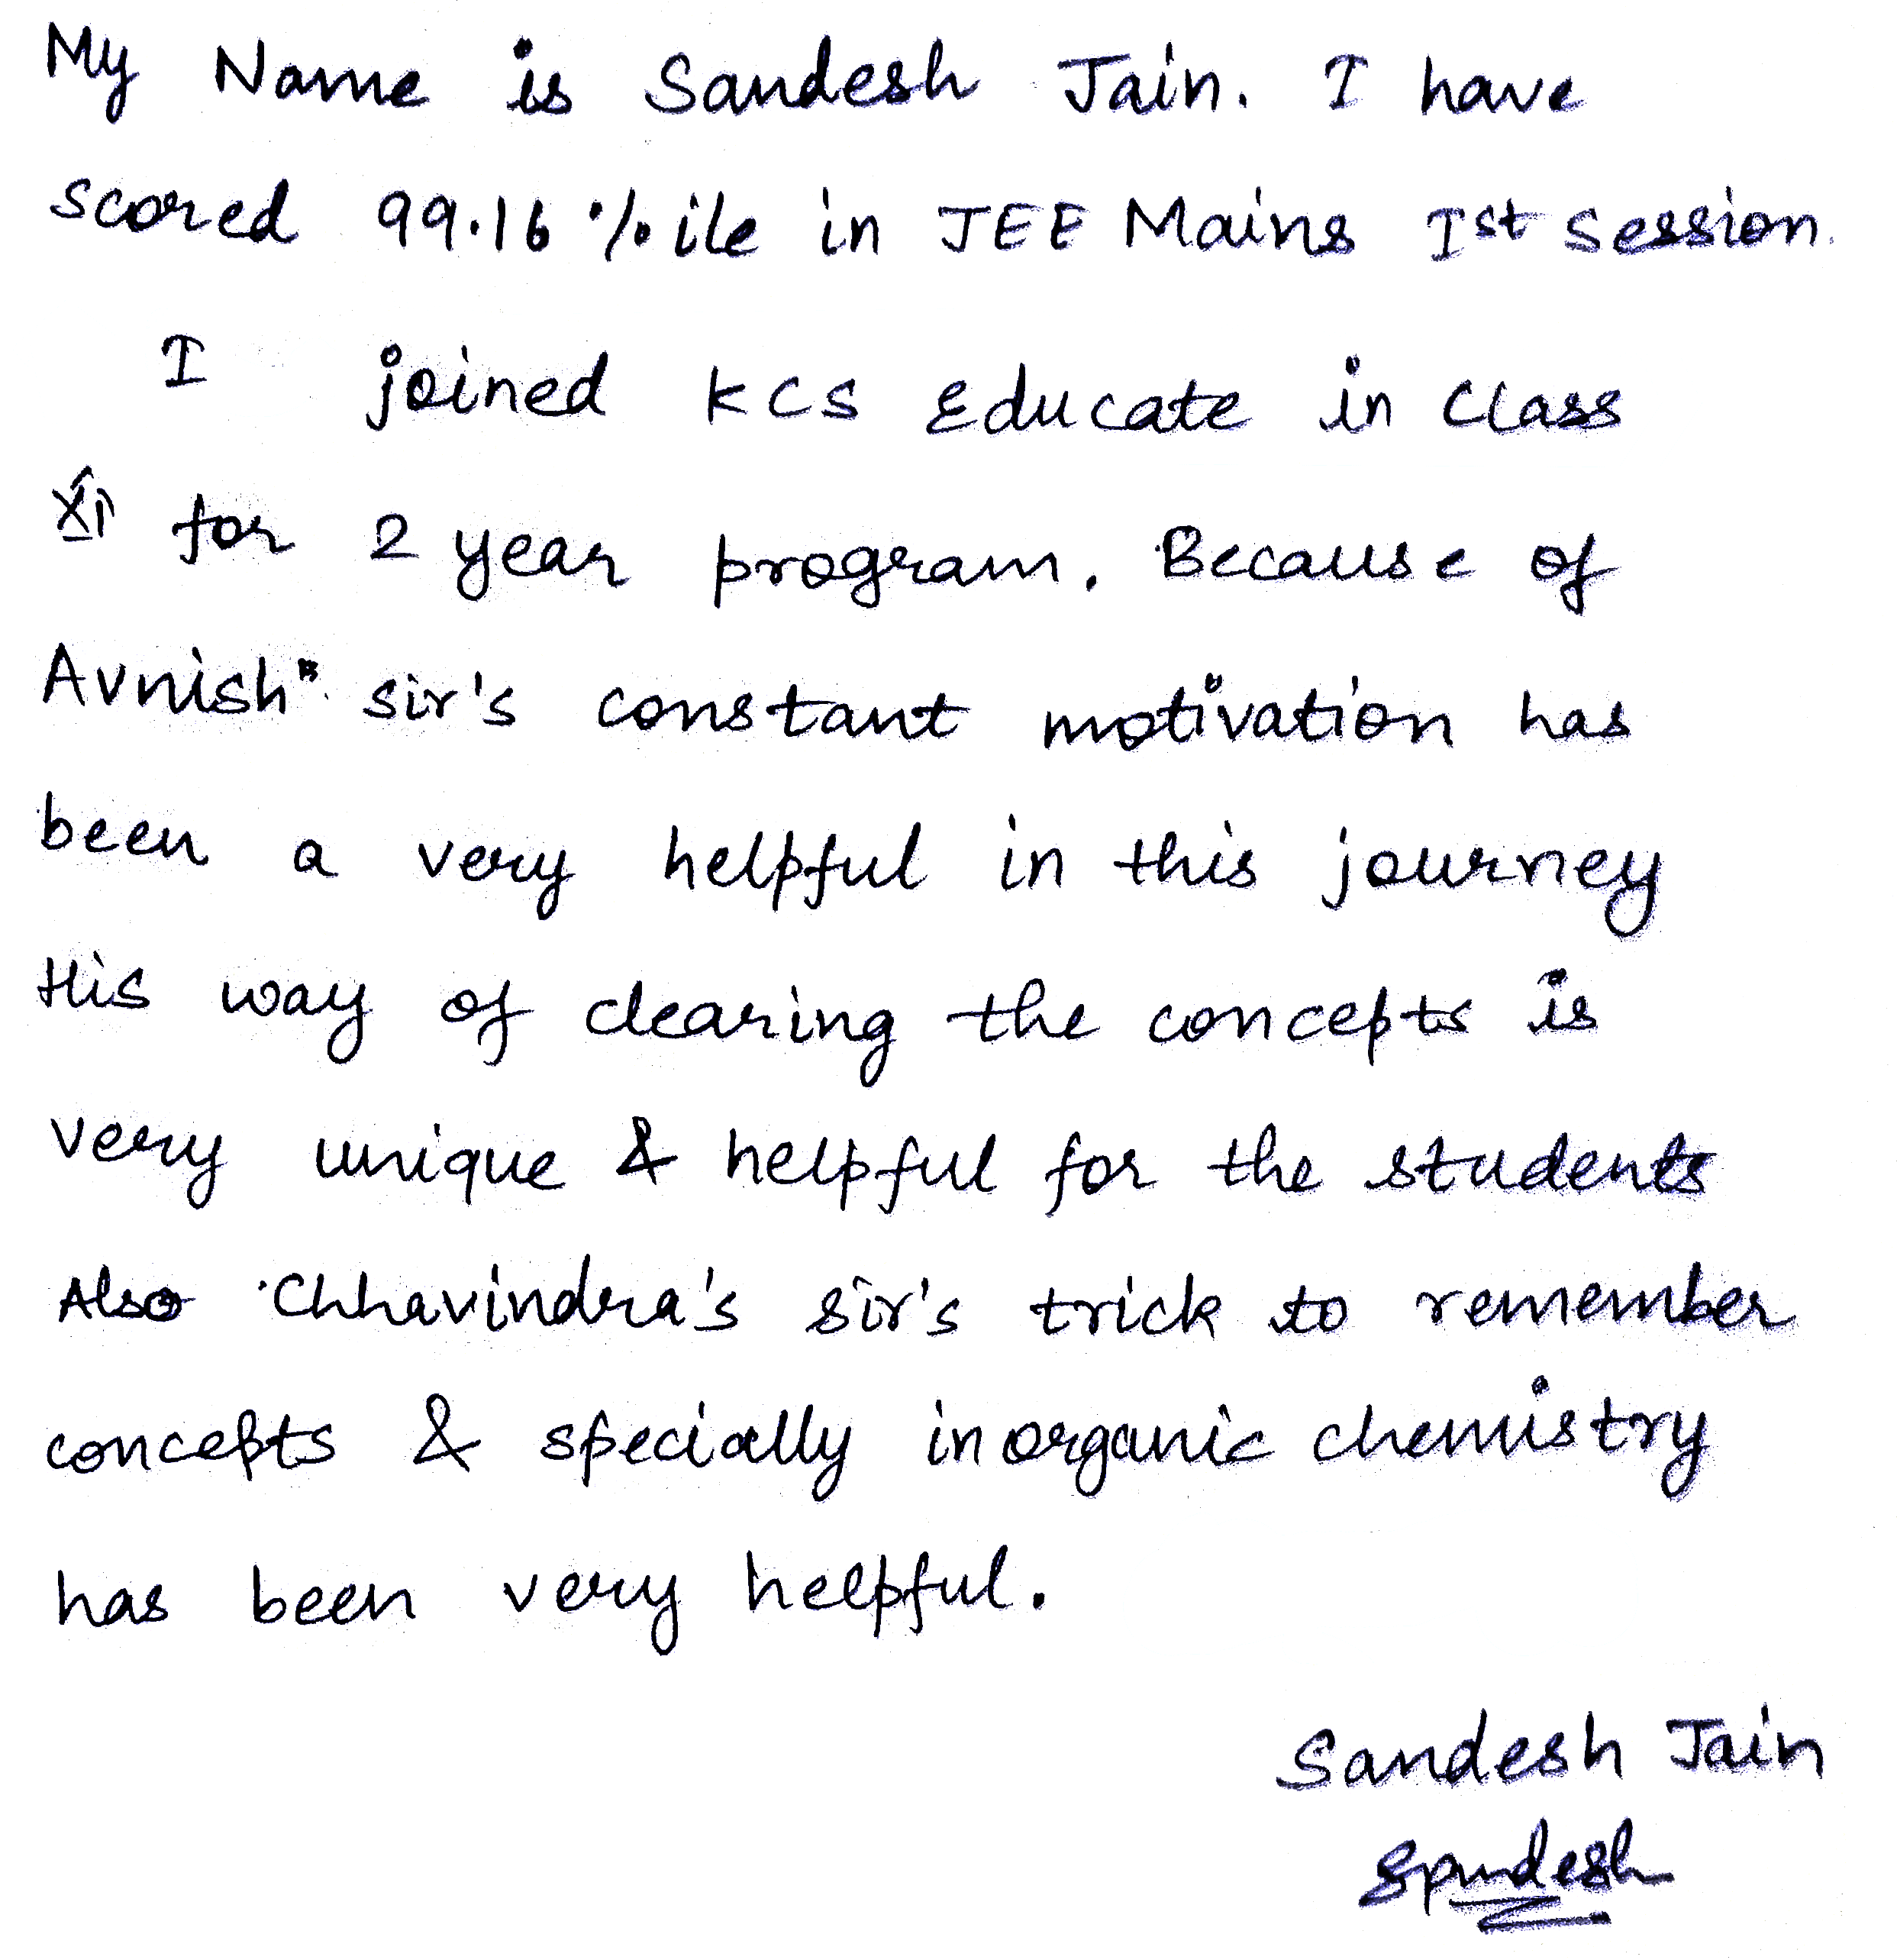 My Name is Sandesh Jain. I have
scored 99.16 %ile in JEE Mains Ist Session.
I joined KCS Educate in Class
XI for 2 year program. Because of
Avnish" sir's constant motivation has
been a very helpful in this journey
His way of clearing the concepts is
very unique & helpful for the students
Also Chhavindra's sir's trick to remember
concepts & specially inorganic chemistry
has been very helpful.
Sandesh Jain
Sandesh